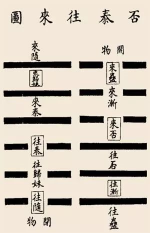 否泰往來圖
開物
來蠱
來漸
來否
往否
往漸
往蠱
來隨
來泰
往泰
往歸妹
往隨
閉物